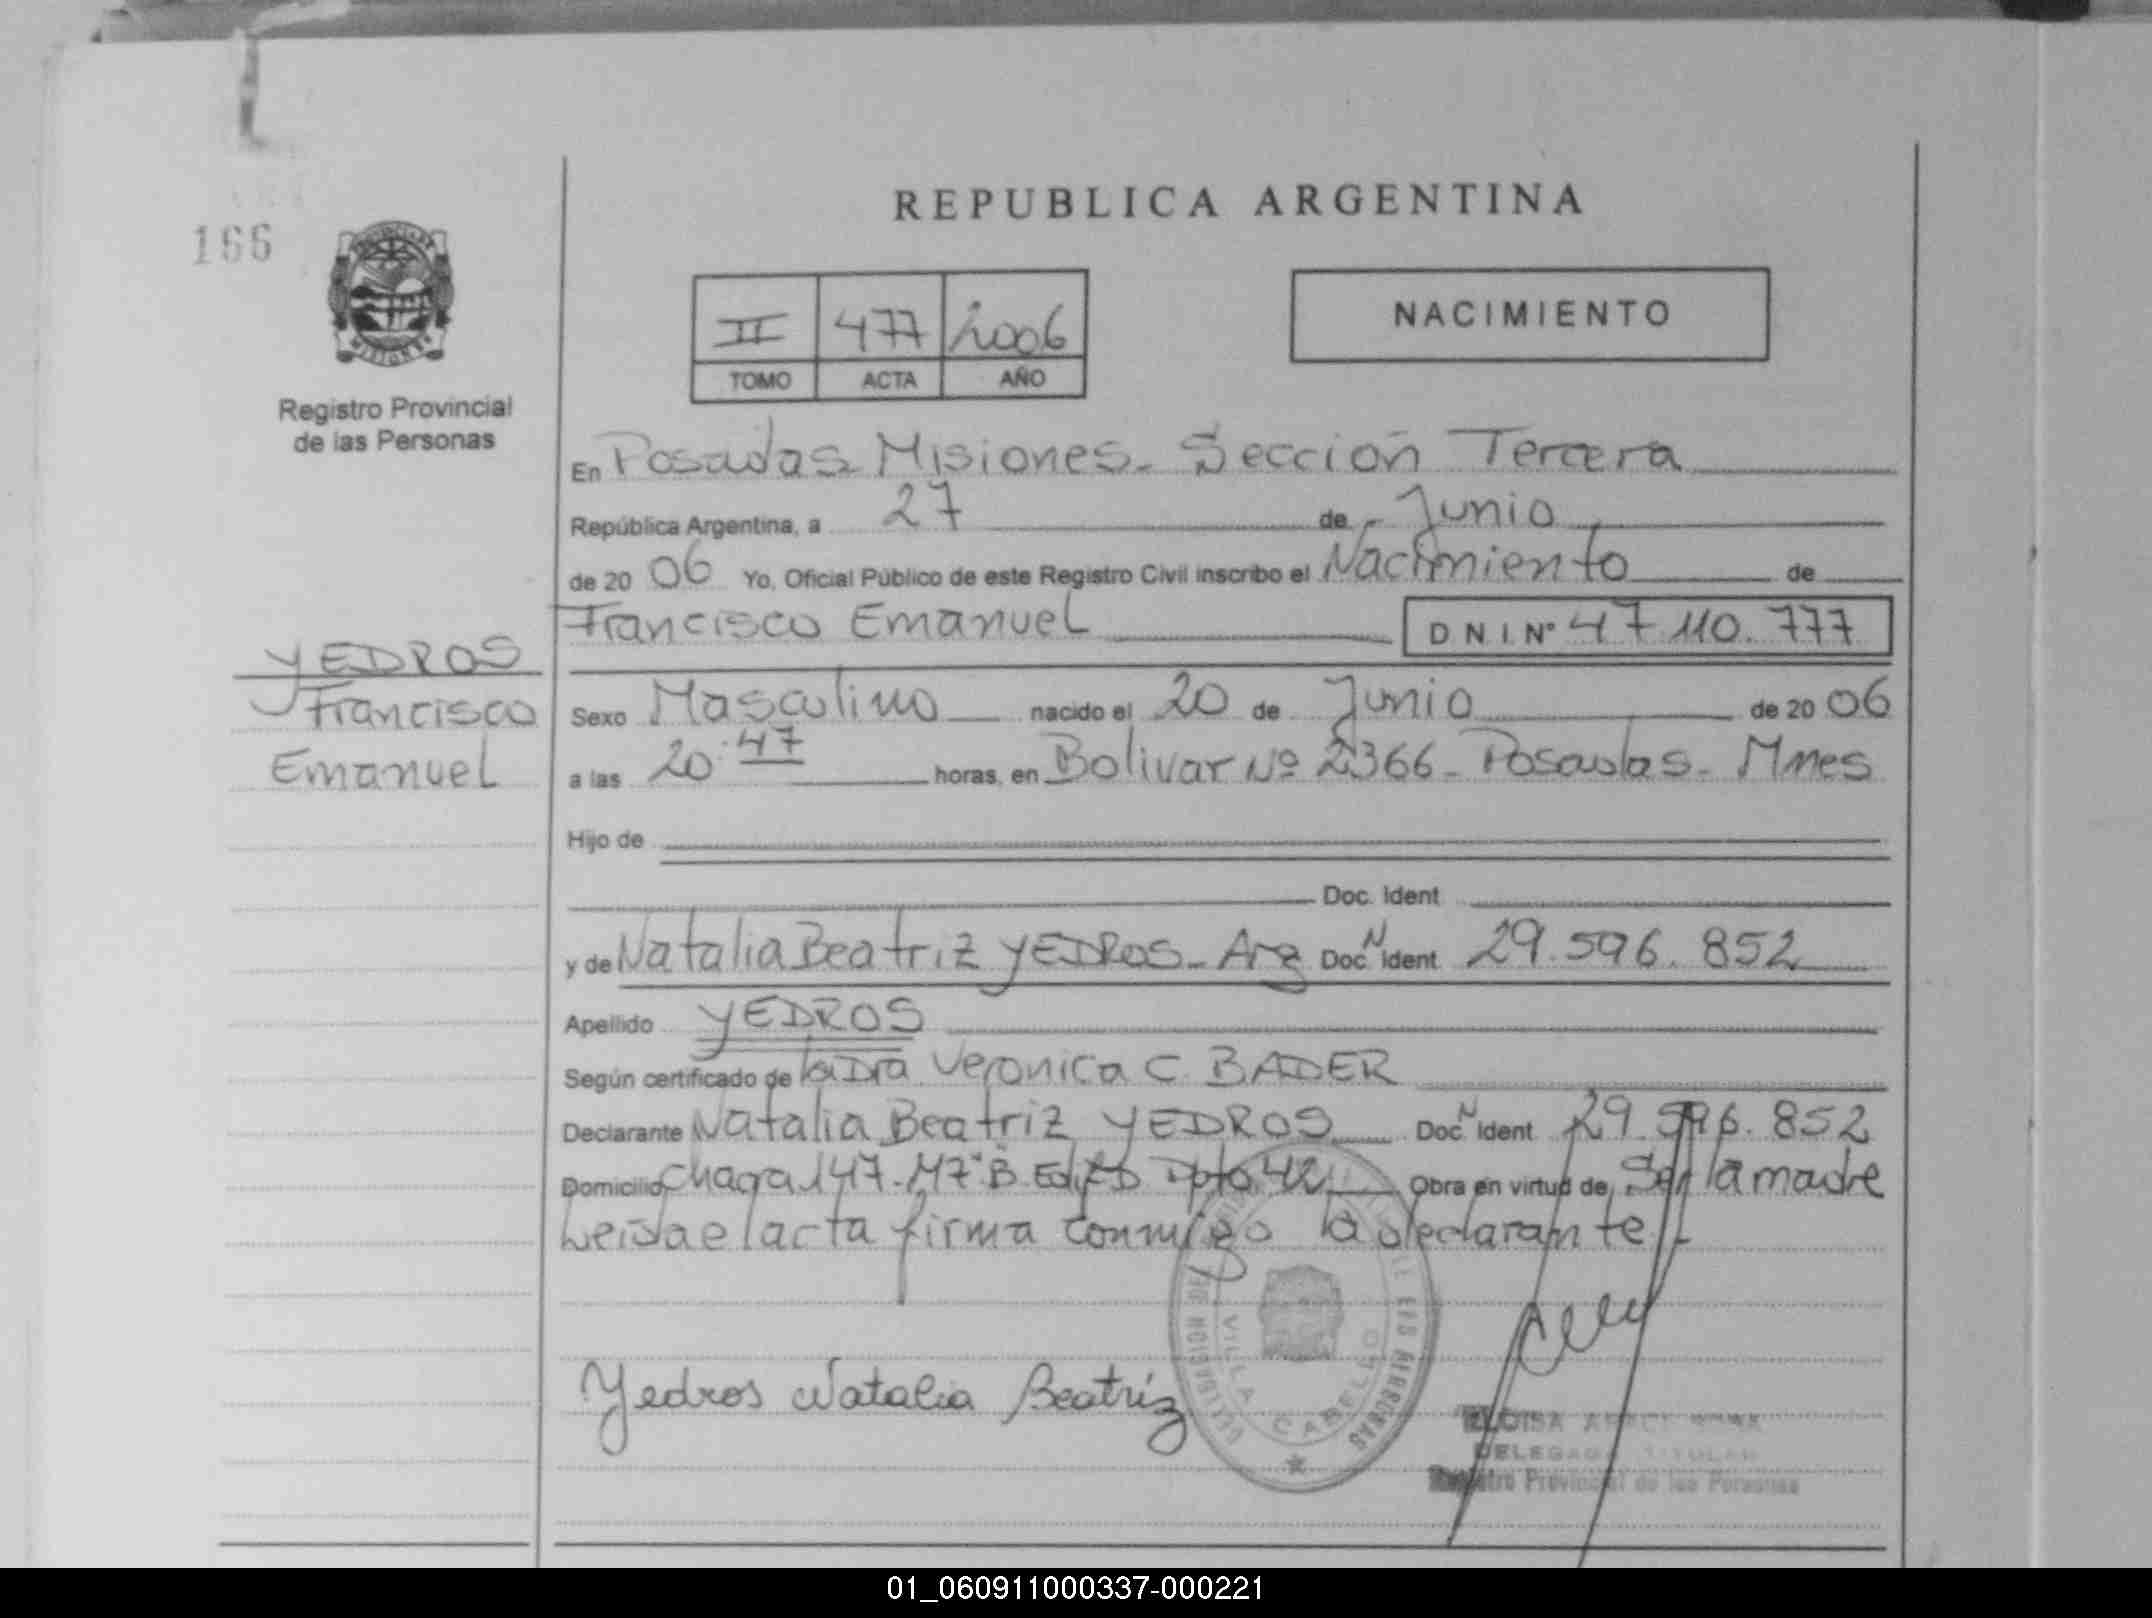 REPUBLICA ARGENTINA
166
II 477 2006
TOMO ACTA AÑO
NACIMIENTO
PROVINCIA DE
MISIONES
Registro Provincial
de las Personas
YEDROS
Francisco
Emanuel
En Posadas Misiones - Sección Tercera
República Argentina, a 27 de Junio
de 20 06 Yo, Oficial Público de este Registro Civil inscribo el Nacimiento de
Francisco Emanuel D N I Nº 47.110.777
Sexo Masculino nacido el 20 de Junio de 20 06
a las 20:47 horas, en Bolivar Nº 2366 - Posadas - Mnes
Hijo de
Doc. Ident
y de Natalia Beatriz YEDROS - Arg Doc N Ident 29.596.852
Apellido YEDROS
Según certificado de la Dra Veronica C. BADER
Declarante Natalia Beatriz YEDROS Doc N Ident 29.596.852
Domicilio Chacra 147 - M7 "B" Edif D Dpto 42 Obra en virtud de Ser la madre
Leida el acta firma conmigo la declarante -
Yedros Natalia Beatriz
DELEGACION DE LAS PERSONAS
VILLA CABELLO
ELOISA
DELEGADA TITULAR
Registro Provincial de las Personas
01_060911000337-000221